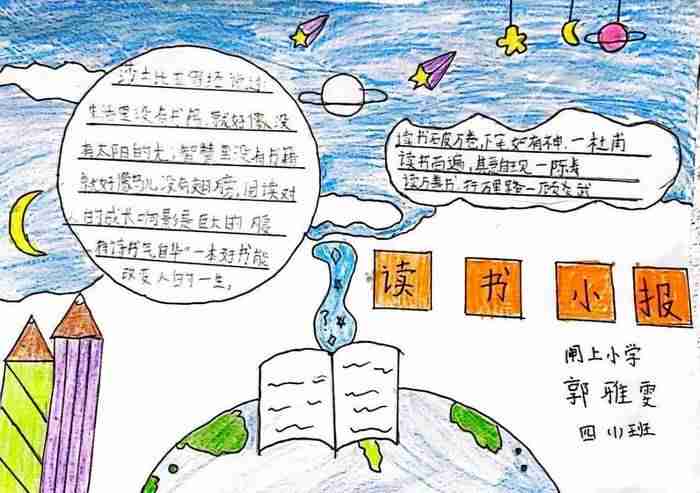 莎士比亚曾经说过
生活里没有书籍,就好像没
有太阳的光,智慧里没有书籍
就好像鸟儿没有翅膀,阅读对
人的成长响影是巨大的,腹
有诗书气自华"一本好书能
改变人的一生。
读书破万卷,下笔如有神.一杜甫
读书百遍,其自现一陈寿
读万卷书,行万里路一顾炎武
读书小报
闸上小学
郭雅雯
四(1)班